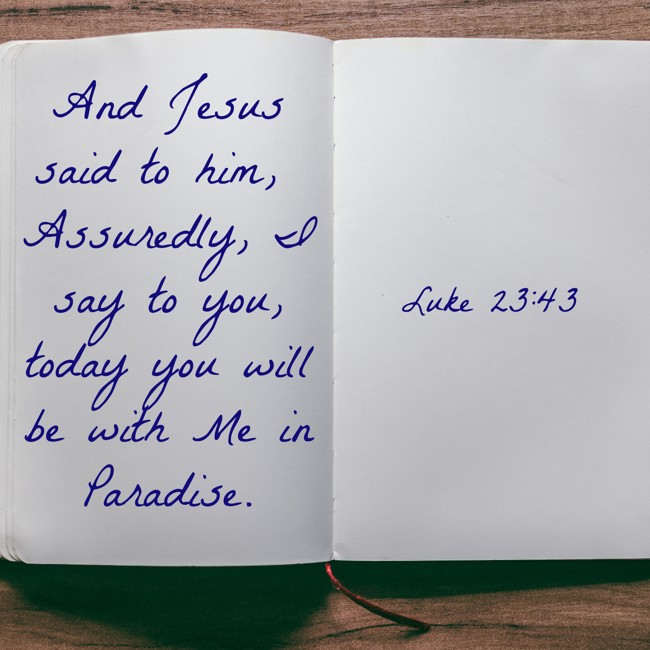 And Jesus
said to him,
Assuredly, I
say to you,
today you will
be with Me in
Paradise.
Luke 23:43